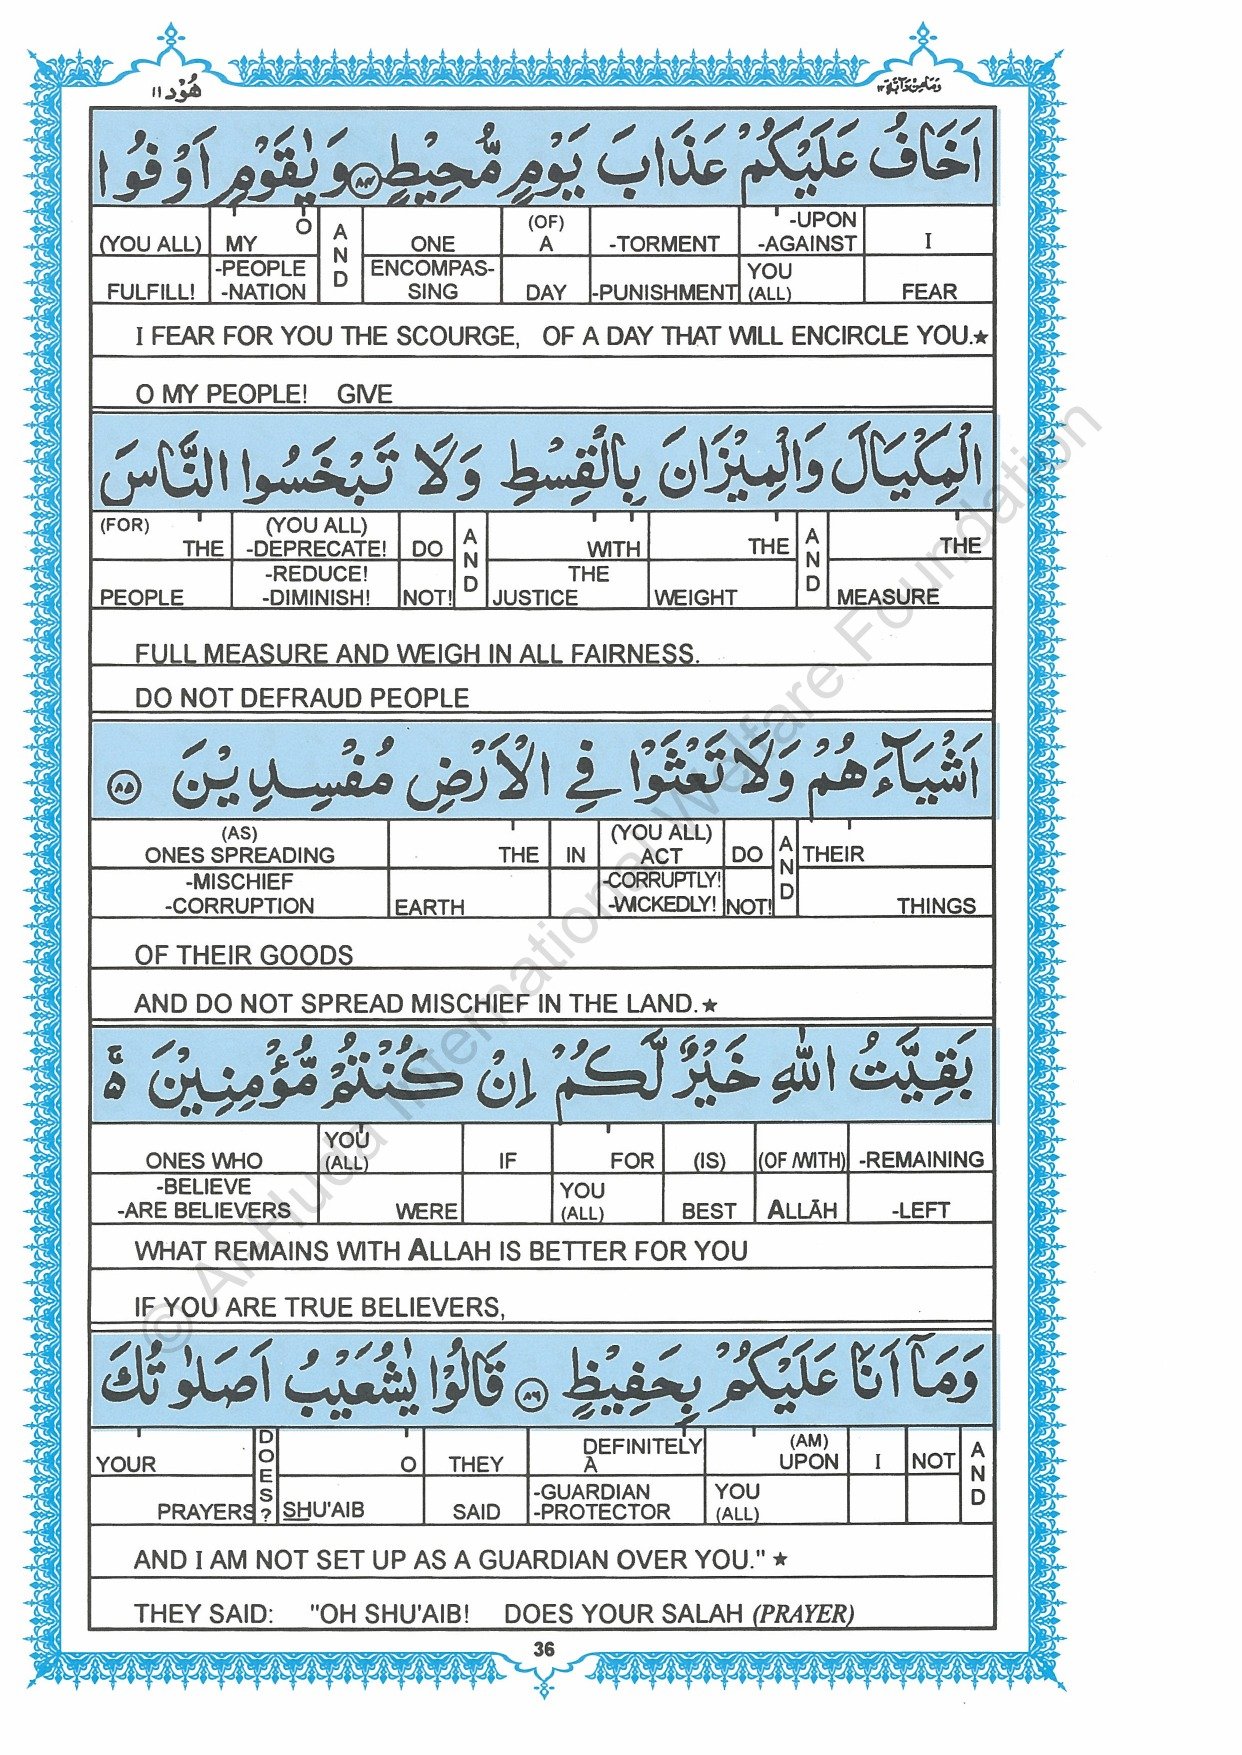 هُوْد ١١
وَمَا مِنْ دَآبَّةٍ ١٢
اَخَافُ عَلَيْكُمْ عَذَابَ يَوْمٍ مُّحِيْطٍ ٨٤ وَيٰقَوْمِ اَوْفُوا
(YOU ALL) MY O AND ONE (OF) A -TORMENT -UPON -AGAINST I
FULFILL! -PEOPLE -NATION ENCOMPAS-SING DAY -PUNISHMENT YOU (ALL) FEAR
I FEAR FOR YOU THE SCOURGE, OF A DAY THAT WILL ENCIRCLE YOU.★
O MY PEOPLE! GIVE
الْمِكْيَالَ وَالْمِيْزَانَ بِالْقِسْطِ وَلَا تَبْخَسُوا النَّاسَ
(FOR) THE (YOU ALL) -DEPRECATE! DO AND WITH THE AND THE
PEOPLE -REDUCE! -DIMINISH! NOT! THE JUSTICE WEIGHT MEASURE
FULL MEASURE AND WEIGH IN ALL FAIRNESS.
DO NOT DEFRAUD PEOPLE
اَشْيَآءَهُمْ وَلَا تَعْثَوْا فِي الْاَرْضِ مُفْسِدِيْنَ ٨٥
(AS) ONES SPREADING THE IN (YOU ALL) ACT DO AND THEIR
-MISCHIEF -CORRUPTION EARTH -CORRUPTLY! -WICKEDLY! NOT! THINGS
OF THEIR GOODS
AND DO NOT SPREAD MISCHIEF IN THE LAND.★
بَقِيَّتُ اللهِ خَيْرٌ لَّكُمْ اِنْ كُنْتُمْ مُّؤْمِنِيْنَ
ONES WHO YOU (ALL) IF FOR (IS) (OF /WITH) -REMAINING
-BELIEVE -ARE BELIEVERS WERE YOU (ALL) BEST ALLĀH -LEFT
WHAT REMAINS WITH ALLAH IS BETTER FOR YOU
IF YOU ARE TRUE BELIEVERS,
وَمَآ اَنَا عَلَيْكُمْ بِحَفِيْظٍ ٨٦ قَالُوْا يٰشُعَيْبُ اَصَلٰوتُكَ
YOUR DOES? O THEY DEFINITELY A (AM) UPON I NOT AND
PRAYERS SHU'AIB SAID -GUARDIAN -PROTECTOR YOU (ALL)
AND I AM NOT SET UP AS A GUARDIAN OVER YOU." ★
THEY SAID: "OH SHU'AIB! DOES YOUR SALAH (PRAYER)
36
© Al-Huda International Welfare Foundation